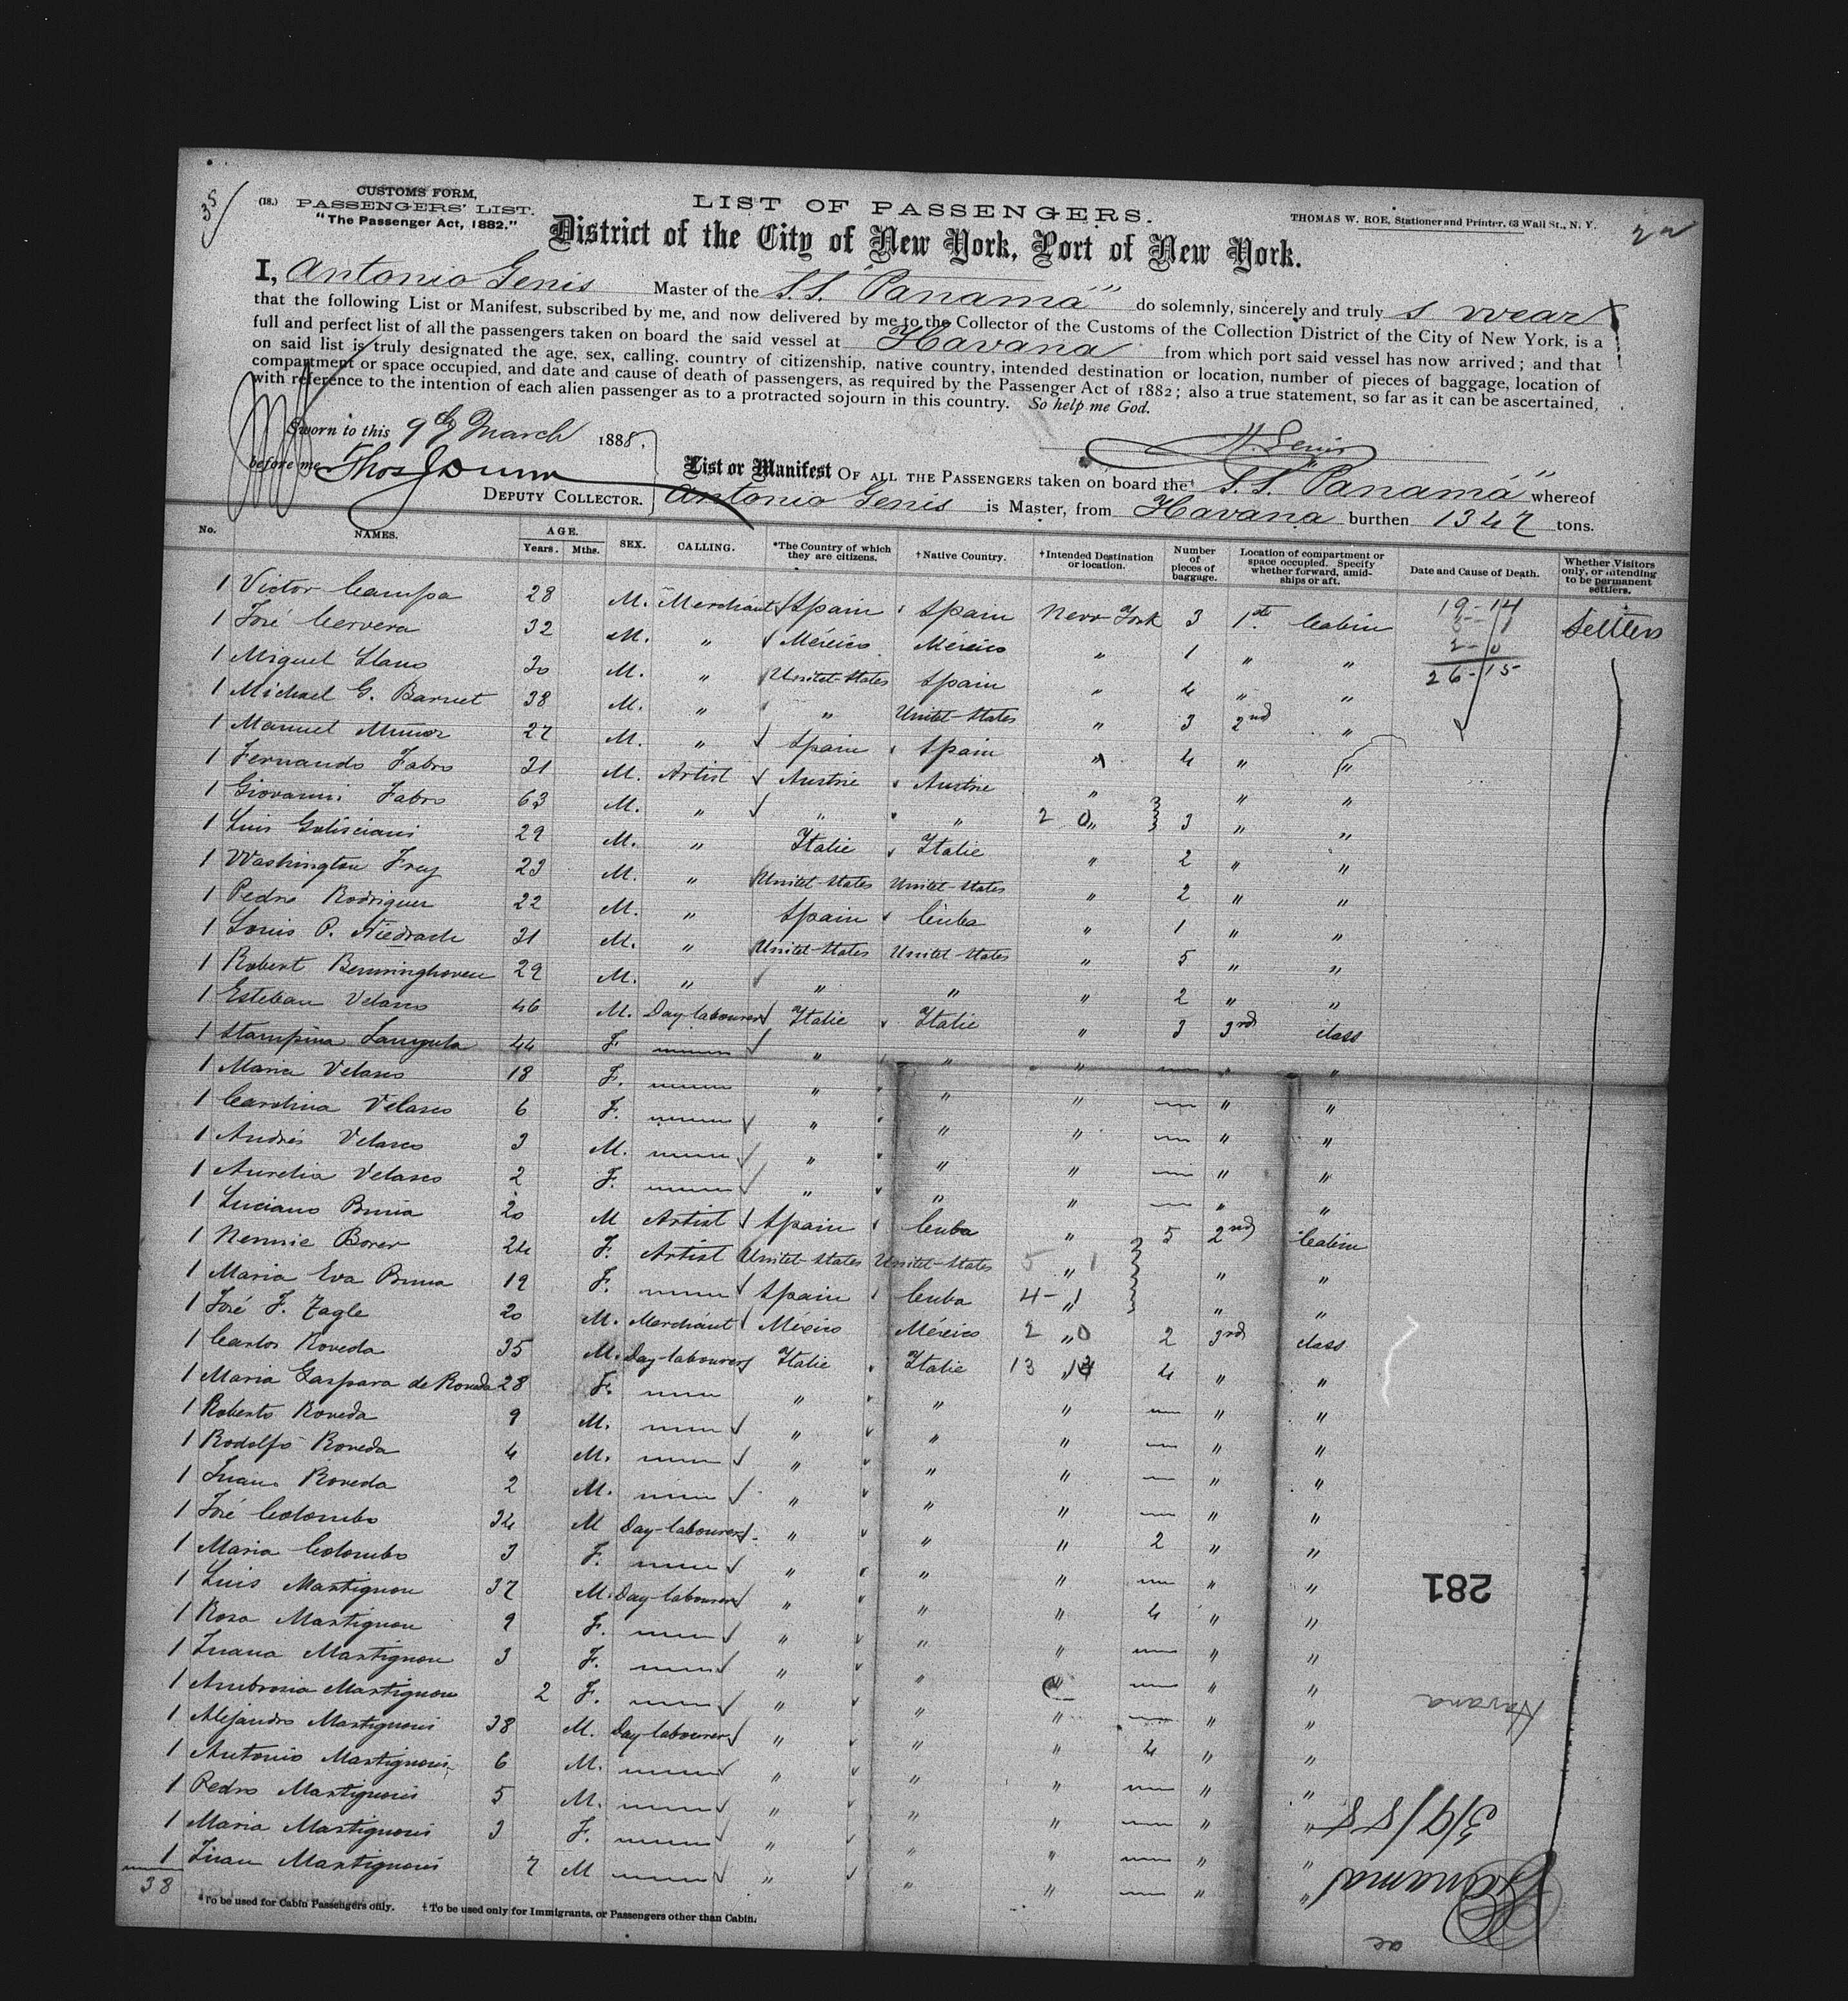 35
(18.) CUSTOMS FORM,
PASSENGERS' LIST.
"The Passenger Act, 1882."
LIST OF PASSENGERS.
THOMAS W. ROE, Stationer and Printer, 63 Wall St., N. Y.
District of the City of New York, Port of New York.
I, Antonio Genis Master of the S.S. "Panamá" do solemnly, sincerely and truly swear
that the following List or Manifest, subscribed by me, and now delivered by me to the Collector of the Customs of the Collection District of the City of New York, is a
full and perfect list of all the passengers taken on board the said vessel at Havana from which port said vessel has now arrived; and that
on said list is truly designated the age, sex, calling, country of citizenship, native country, intended destination or location, number of pieces of baggage, location of
compartment or space occupied, and date and cause of death of passengers, as required by the Passenger Act of 1882; also a true statement, so far as it can be ascertained,
with reference to the intention of each alien passenger as to a protracted sojourn in this country. So help me God.
Sworn to this 9th March 1888.
A. Genis
before me Thos J Dunn
DEPUTY COLLECTOR.
List or Manifest OF ALL THE PASSENGERS taken on board the S.S. "Panamá" whereof
Antonio Genis is Master, from Havana burthen 1347 tons.
No. NAMES. AGE. Years. Mths. SEX. CALLING. *The Country of which they are citizens. †Native Country. †Intended Destination or location. Number of pieces of baggage. Location of compartment or space occupied. Specify whether forward, amidships or aft. Date and Cause of Death. Whether Visitors only, or intending to be permanent settlers.
1 Victor Campa 28 M. Merchant Spain Spain New York 3 1st Cabin 19-14 Settlers
1 José Cervera 32 M. " México México " 1 " "
1 Miguel Llano 30 M. " United-States Spain " 4 " " 26-15
1 Michael G. Barnet 38 M. " " United-States " 3 2nd "
1 Manuel Munoz 27 M. " Spain Spain " 4 " "
1 Fernando Fabro 31 M. Artist Austrie Austrie " " "
1 Giovanni Fabro 63 M. " " " 2 0 " 3 " "
1 Luis Galisciani 29 M. " Italie Italie " 2 " "
1 Washington Frey 23 M. " United-States United-States " 2 " "
1 Pedro Rodriguez 22 M. " Spain Cuba " 1 " "
1 Louis P. 31 M. " United-States United-States " 5 " "
1 Robert Benninghoven 29 M. " " " " 2 " "
1 Esteban Velasco 46 M. Day-labourer Italie Italie " 3 3rd class
1 Stampina 44 F. " " " " "
1 Maria Velasco 18 F. " " " " "
1 Carolina Velasco 6 F. " " " " "
1 Andrés Velasco 3 M. " " " " "
1 Aurelia Velasco 2 F. " " " " "
1 Luciano Bruna 20 M Artist Spain Cuba " 5 2nd Cabin
1 Nennie Borer 24 F. Artist United-States United-States 5 " 1 " "
1 Maria Eva Bruna 19 F. Spain Cuba 4-1 " " "
1 José F. Tagle 20 M. Merchant México México 2 " 0 2 3rd class
1 Carlos Roveda 35 M. Day-labourer Italie Italie 13 " 4 " "
1 Maria Gaspara de Roveda 28 F. " " " " "
1 Roberto Roveda 9 M. " " " " "
1 Rodolfo Roveda 4 M. " " " " "
1 Juan Roveda 2 M. " " " " "
1 José Colombo 34 M Day-labourer " " " 2 " "
1 Maria Colombo 3 F. " " " " "
1 Luis Mastignon 37 M. Day-labourer " " " 4 " "
1 Rosa Mastignon 9 F. " " " " "
1 Juana Mastignon 3 F. " " " " "
1 Ambrosia Mastignon 2 F. " " " " "
1 Alejandro Mastignoni 38 M. Day-labourer " " " 4 " "
1 Antonio Mastignoni 6 M. " " " " "
1 Pedro Mastignoni 5 M. " " " " "
1 Maria Mastignoni 3 F. " " " " "
1 Juan Mastignoni 7 M " " " " "
38
*To be used for Cabin Passengers only. †To be used only for Immigrants, or Passengers other than Cabin.
281
Havana
3/9/88
Panama